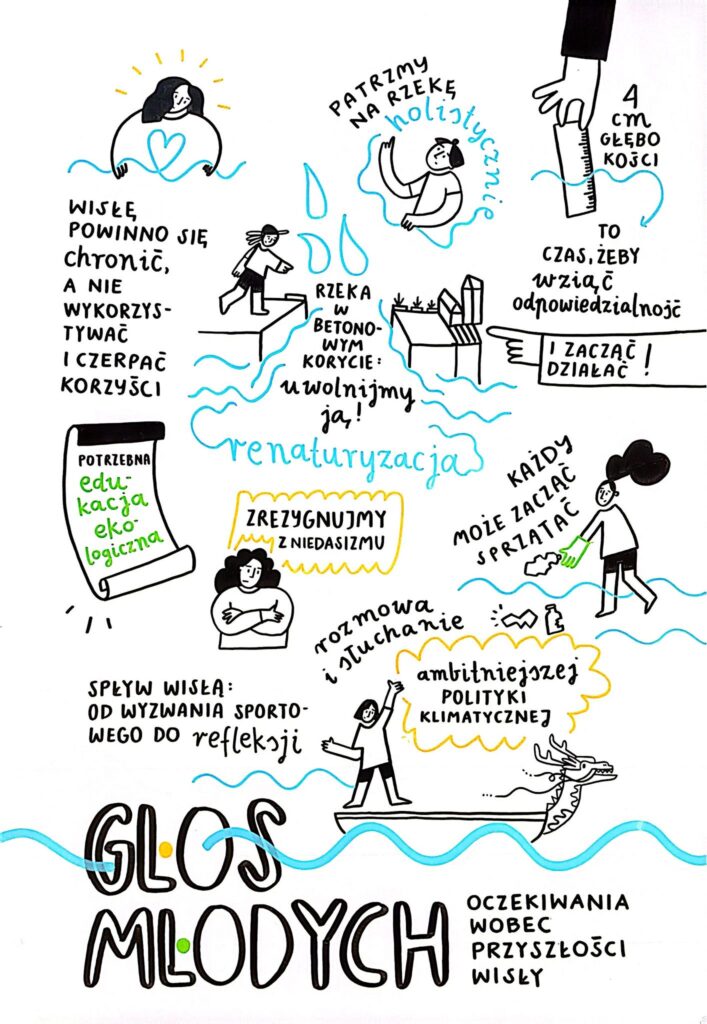 PATRZMY
NA RZEKĘ
holistycznie
4
cm
GŁĘBO
KOŚCI
WISŁĘ
POWINNO SIĘ
chronić,
A NIE
WYKORZYS-
TYWAĆ
I CZERPAĆ
KORZYŚCI
RZEKA
W
BETONO-
WYM
KORYCIE:
uwolnijmy
ją!
renaturyzacja
TO
CZAS, ŻEBY
wziąć
odpowiedzialność
I ZACZĄĆ
DZIAŁAĆ!
POTRZEBNA
edu-
kacja
eko-
logiczna
ZREZYGNUJMY
Z NIEDASIZMU
KAŻDY
MOŻE ZACZĄĆ
SPRZĄTAĆ
rozmowa
i słuchanie
ambitniejszej
POLITYKI
KLIMATYCZNEJ
SPŁYW WISŁĄ:
OD WYZWANIA SPORTO-
WEGO DO refleksji
GŁOS
MŁODYCH
OCZEKIWANIA
WOBEC
PRZYSZŁOŚCI
WISŁY